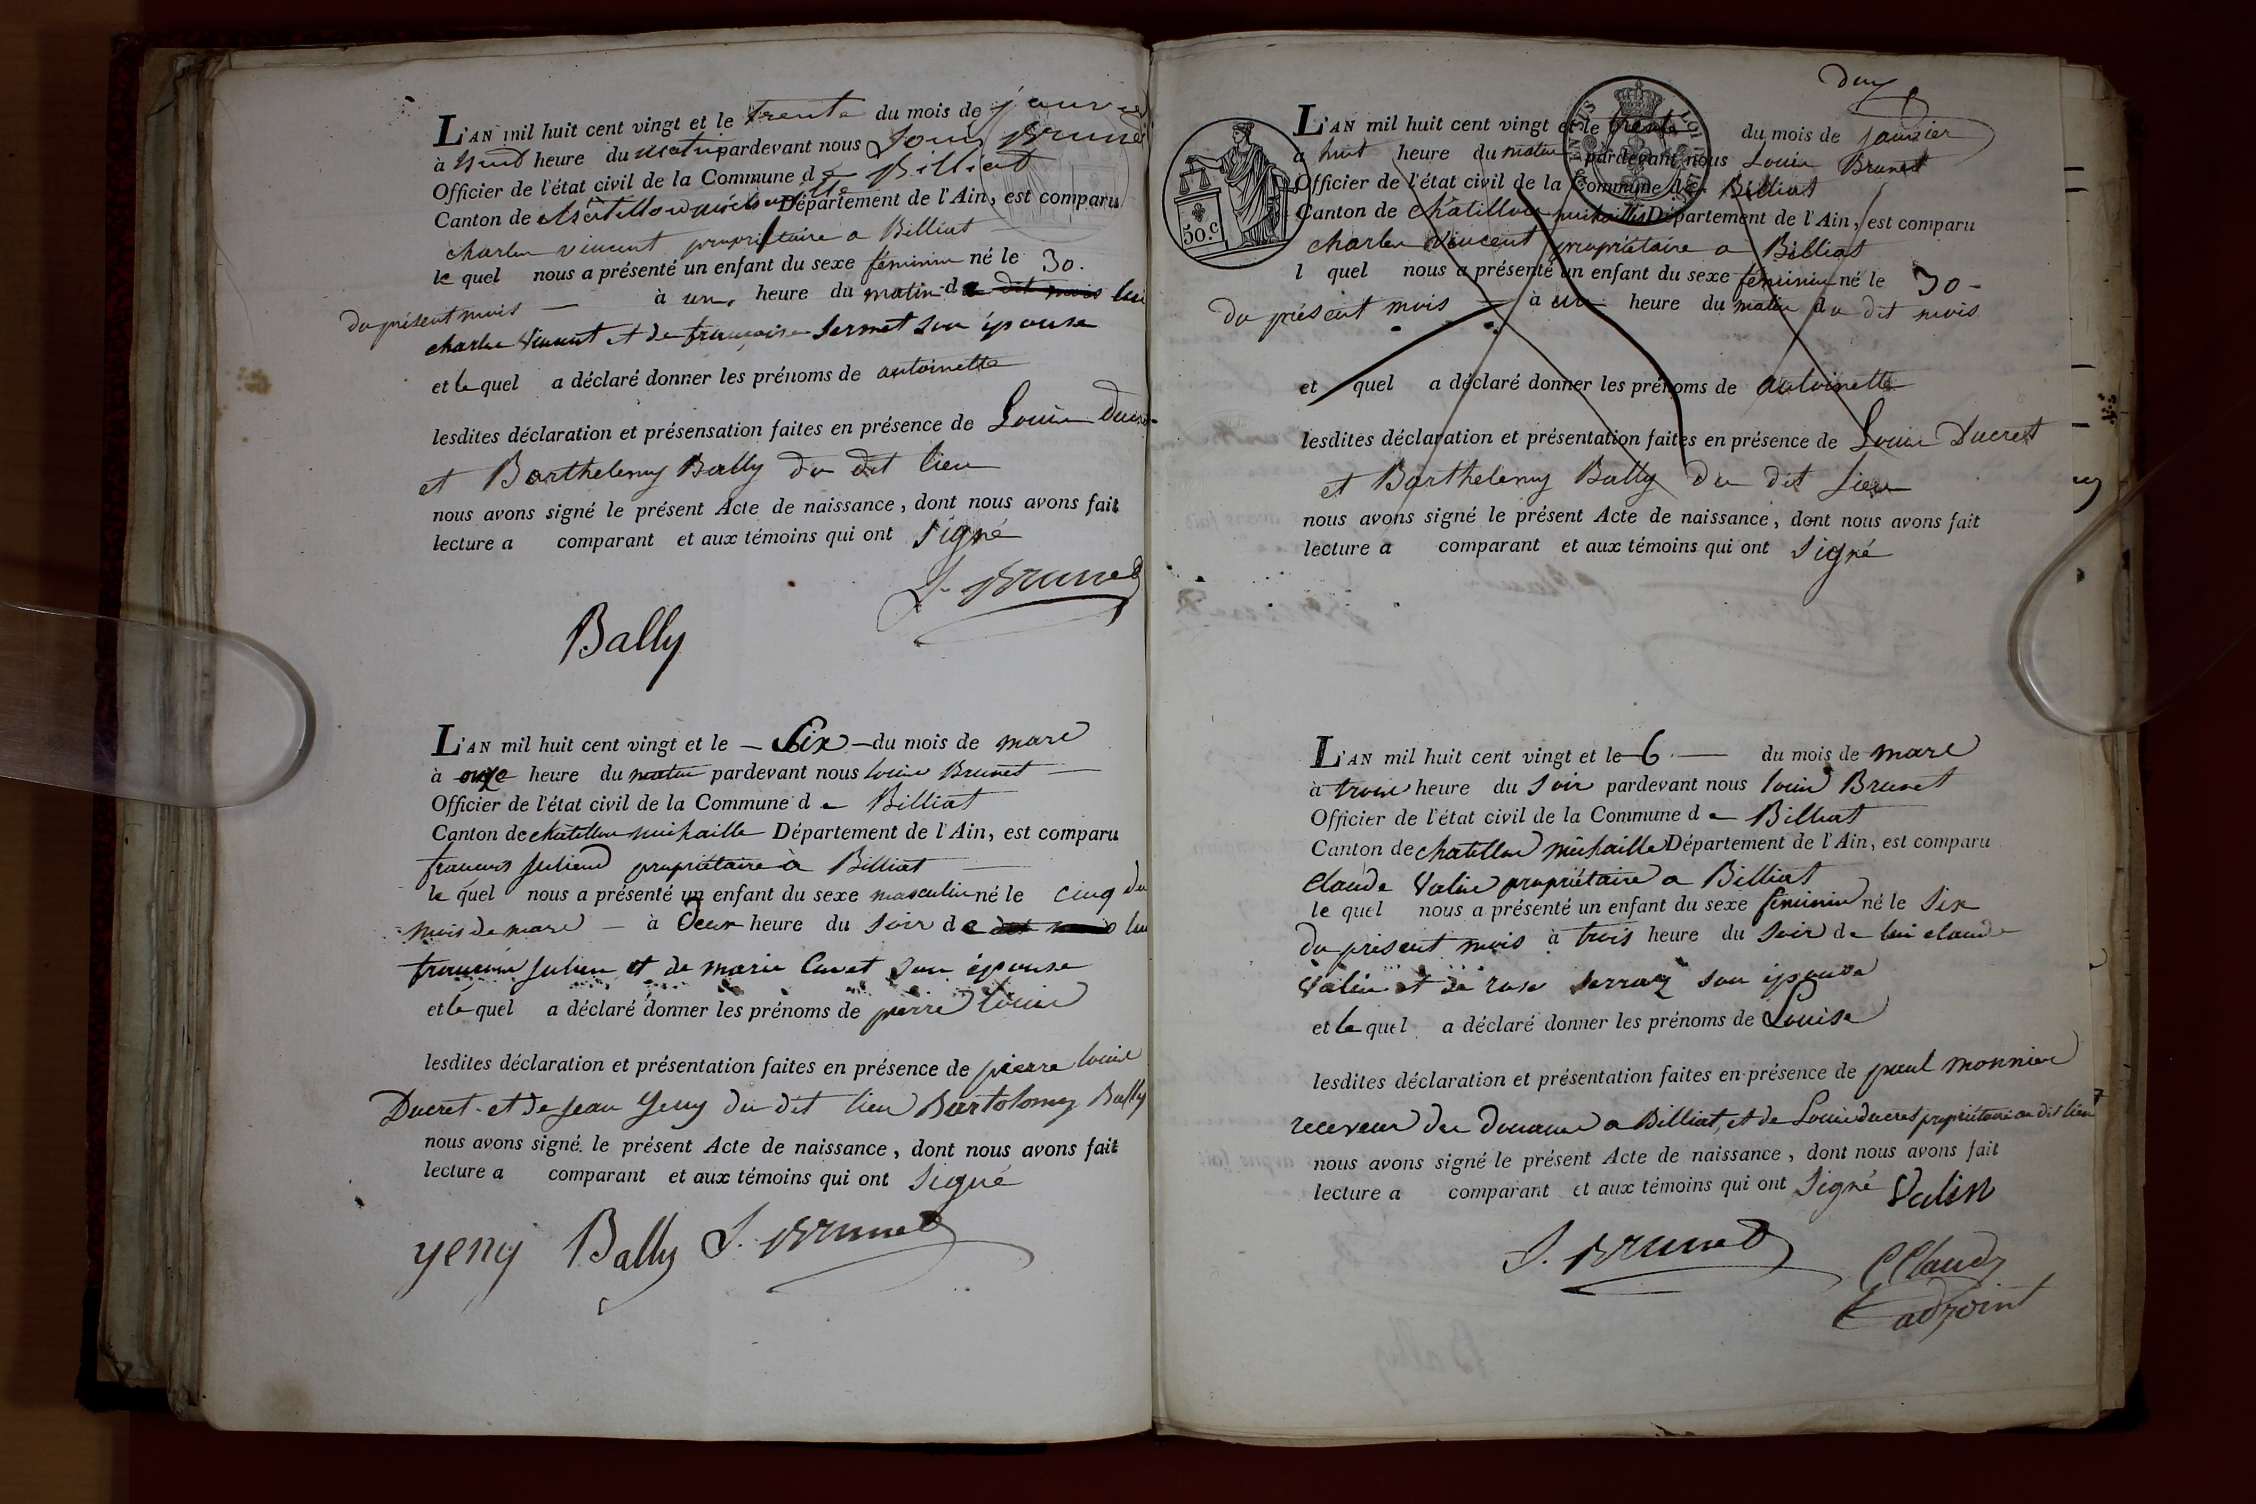 L'AN mil huit cent vingt et le trente du mois de janvier
à huit heure du matin pardevant nous Louis Brunet
Officier de l'état civil de la Commune de Billiat
Canton de chatillon michaille Département de l'Ain, est comparu
charles vincent propriétaire a Billiat
le quel nous a présenté un enfant du sexe féminin né le 30.
du présent mois — à une heure du matin de dit mois lui
charles Vincent et de françoise Sermet son épouse
et le quel a déclaré donner les prénoms de antoinette
lesdites déclaration et présensation faites en présence de Louis Ducret
et Barthelemy Bally du dit lieu
nous avons signé le présent Acte de naissance, dont nous avons fait
lecture a comparant et aux témoins qui ont signé
L. Brunet
Bally
L'AN mil huit cent vingt et le — Six — du mois de mars
à onze heure du matin pardevant nous louis Brunet —
Officier de l'état civil de la Commune de Billiat
Canton de chatillon michaille Département de l'Ain, est comparu
françois Julien propriétaire à Billiat
le quel nous a présenté un enfant du sexe masculin né le cinq du
mois de mars — à Deux heure du soir de dit mois lui
françois Julien et de marie Cavet son épouse
et le quel a déclaré donner les prénoms de pierre louis
lesdites déclaration et présentation faites en présence de pierre louis
Ducret et de Jean Yeny du dit lieu Bartolomy Bally
nous avons signé le présent Acte de naissance, dont nous avons fait
lecture a comparant et aux témoins qui ont signé
yeny Bally L. Brunet
50.c
L'AN mil huit cent vingt et le trente du mois de janvier
à huit heure du matin pardevant nous Louis Brunet
Officier de l'état civil de la Commune de Billiat
Canton de chatillon michaille Département de l'Ain, est comparu
charles Vincent propriétaire a Billiat
l quel nous a présenté un enfant du sexe féminin né le 30 -
du présent mois — à une heure du matin du dit mois
et quel a déclaré donner les prénoms de antoinette
lesdites déclaration et présentation faites en présence de Louis Ducret
et Barthelemy Bally du dit lieu
nous avons signé le présent Acte de naissance, dont nous avons fait
lecture a comparant et aux témoins qui ont signé
L'AN mil huit cent vingt et le 6 — du mois de mars
à trois heure du soir pardevant nous louis Brunet
Officier de l'état civil de la Commune de Billiat
Canton de chatillon michaille Département de l'Ain, est comparu
Claude Valin propriétaire a Billiat
le quel nous a présenté un enfant du sexe féminin né le Six
du présent mois à trois heure du soir de lui claude
Valin et de rose Serraz son épouse
et le quel a déclaré donner les prénoms de Louise
lesdites déclaration et présentation faites en présence de paul monnier
receveur des douanes a Billiat, et de Louis ducret propriétaire au dit lieu
nous avons signé le présent Acte de naissance, dont nous avons fait
lecture a comparant et aux témoins qui ont signé Valin
L. Brunet